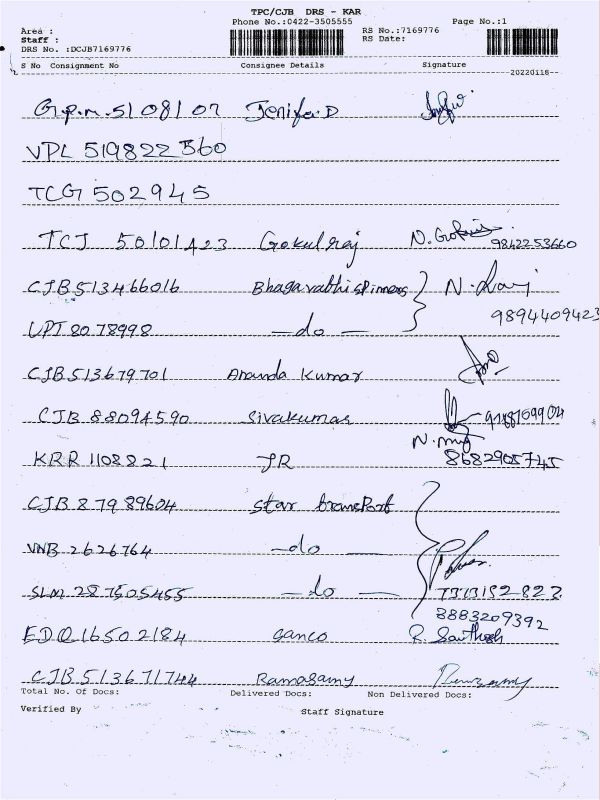 TPC/CJB DRS - KAR
Phone No.:0422-3505555 Page No.:1
Area :
Staff :
RS No.:7169776
DRS No. :DCJB7169776
RS Date:
S No Consignment No Consignee Details Signature
20220118
G.P.M. 5108107 Jenifer.D
VPL 519822560
TCG 502945
TCJ 50101423 Gokulraj N. Gokulraj 9842253660
CJB 513466016 Bhagavathi spinners N. Ravi
9894409423
UPT 8078998 —do—
CJB 513679701 Ananda Kumar
CJB 88094590 Sivakumar
KRR 1108821 JR 8682905745
CJB 87989604 Star transport
VNB 2626764 —do—
SLM 287505455 —do—
8883209392
EDQ 16502184 Ganco R. Santhosh
CJB 513671744 Ramasamy Ramasamy
Total No. Of Docs: Delivered Docs: Non Delivered Docs:
Verified By Staff Signature